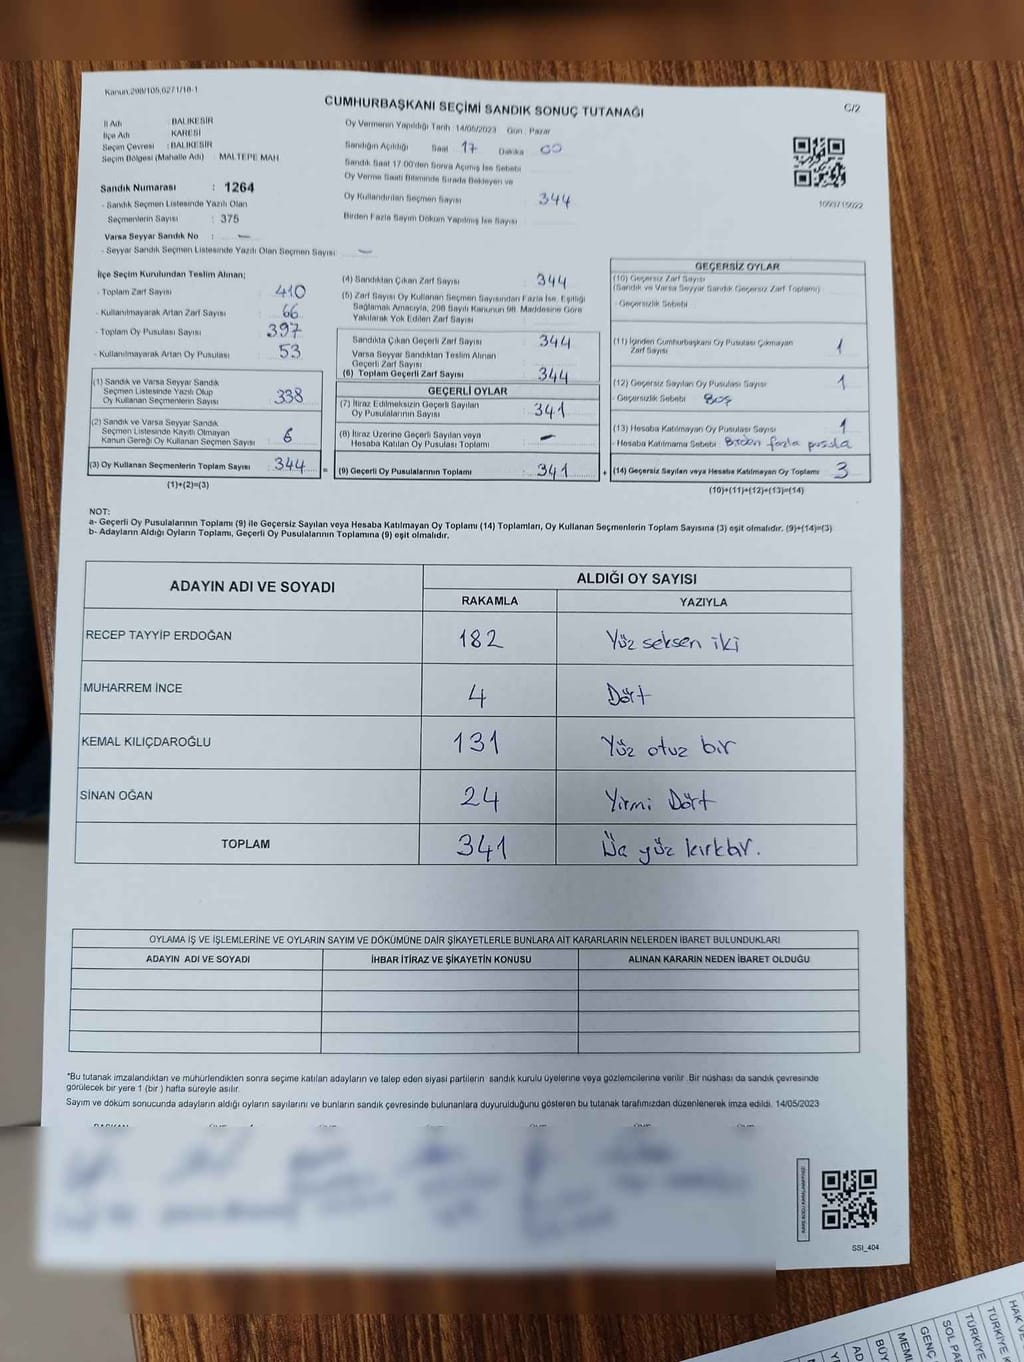 Kanun.298/105,6271/18-1
CUMHURBAŞKANI SEÇİMİ SANDIK SONUÇ TUTANAĞI
C/2
İl Adı BALIKESİR
İlçe Adı KARESİ
Seçim Çevresi : BALIKESİR
Seçim Bölgesi (Mahalle Adı) : MALTEPE MAH.
Sandık Numarası : 1264
- Sandık Seçmen Listesinde Yazılı Olan
Seçmenlerin Sayısı : 375
Varsa Seyyar Sandık No : –
- Seyyar Sandık Seçmen Listesinde Yazılı Olan Seçmen Sayısı : –
Oy Vermenin Yapıldığı Tarih 14/05/2023 Gün : Pazar
Sandığın Açıldığı Saat 17 Dakika 00
Sandık Saat 17.00'den Sonra Açılmış İse Sebebi
Oy Verme Saati Bitiminde Sırada Bekleyen ve
Oy Kullandırılan Seçmen Sayısı : 344
Birden Fazla Sayım Döküm Yapılmış İse Sayısı
İlçe Seçim Kurulundan Teslim Alınan;
- Toplam Zarf Sayısı : 410
- Kullanılmayarak Artan Zarf Sayısı : 66
- Toplam Oy Pusulası Sayısı : 397
- Kullanılmayarak Artan Oy Pusulası : 53
(1) Sandık ve Varsa Seyyar Sandık
Seçmen Listesinde Yazılı Olup
Oy Kullanan Seçmenlerin Sayısı : 338
(2) Sandık ve Varsa Seyyar Sandık
Seçmen Listesinde Kayıtlı Olmayan
Kanun Gereği Oy Kullanan Seçmen Sayısı : 6
(3) Oy Kullanan Seçmenlerin Toplam Sayısı : 344
(1)+(2)=(3)
(4) Sandıktan Çıkan Zarf Sayısı : 344
(5) Zarf Sayısı Oy Kullanan Seçmen Sayısından Fazla İse, Eşitliği
Sağlamak Amacıyla, 298 Sayılı Kanunun 98. Maddesine Göre
Yakılarak Yok Edilen Zarf Sayısı :
Sandıkta Çıkan Geçerli Zarf Sayısı : 344
Varsa Seyyar Sandıktan Teslim Alınan
Geçerli Zarf Sayısı :
(6) Toplam Geçerli Zarf Sayısı : 344
GEÇERLİ OYLAR
(7) İtiraz Edilmeksizin Geçerli Sayılan
Oy Pusulalarının Sayısı : 341
(8) İtiraz Üzerine Geçerli Sayılan veya
Hesaba Katılan Oy Pusulası Toplamı : –
= (9) Geçerli Oy Pusulalarının Toplamı : 341
GEÇERSİZ OYLAR
(10) Geçersiz Zarf Sayısı
(Sandık ve Varsa Seyyar Sandık Geçersiz Zarf Toplamı)
- Geçersizlik Sebebi
(11) İçinden Cumhurbaşkanı Oy Pusulası Çıkmayan
Zarf Sayısı 1
(12) Geçersiz Sayılan Oy Pusulası Sayısı 1
- Geçersizlik Sebebi : Boş
(13) Hesaba Katılmayan Oy Pusulası Sayısı 1
- Hesaba Katılmama Sebebi : Birden fazla pusula
+ (14) Geçersiz Sayılan veya Hesaba Katılmayan Oy Toplamı : 3
(10)+(11)+(12)+(13)=(14)
NOT:
a- Geçerli Oy Pusulalarının Toplamı (9) ile Geçersiz Sayılan veya Hesaba Katılmayan Oy Toplamı (14) Toplamları, Oy Kullanan Seçmenlerin Toplam Sayısına (3) eşit olmalıdır. (9)+(14)=(3)
b- Adayların Aldığı Oyların Toplamı, Geçerli Oy Pusulalarının Toplamına (9) eşit olmalıdır.
ADAYIN ADI VE SOYADI ALDIĞI OY SAYISI
RAKAMLA YAZIYLA
RECEP TAYYİP ERDOĞAN 182 Yüz seksen iki
MUHARREM İNCE 4 Dört
KEMAL KILIÇDAROĞLU 131 Yüz otuz bir
SİNAN OĞAN 24 Yirmi Dört
TOPLAM 341 Üç yüz kırkbir.
OYLAMA İŞ VE İŞLEMLERİNE VE OYLARIN SAYIM VE DÖKÜMÜNE DAİR ŞİKAYETLERLE BUNLARA AİT KARARLARIN NELERDEN İBARET BULUNDUKLARI
ADAYIN ADI VE SOYADI İHBAR İTİRAZ VE ŞİKAYETİN KONUSU ALINAN KARARIN NEDEN İBARET OLDUĞU
*Bu tutanak imzalandıktan ve mühürlendikten sonra seçime katılan adayların ve talep eden siyasi partilerin sandık kurulu üyelerine veya gözlemcilerine verilir. Bir nüshası da sandık çevresinde
görülecek bir yere 1 (bir ) hafta süreyle asılır.
Sayım ve döküm sonucunda adayların aldığı oyların sayılarını ve bunların sandık çevresinde bulunanlara duyurulduğunu gösteren bu tutanak tarafımızdan düzenlenerek imza edildi. 14/05/2023
SSI_404
HAK VE
TÜRKİYE K
TÜRKİYE
SOL PA
GENÇ
MEM
BÜY
AD